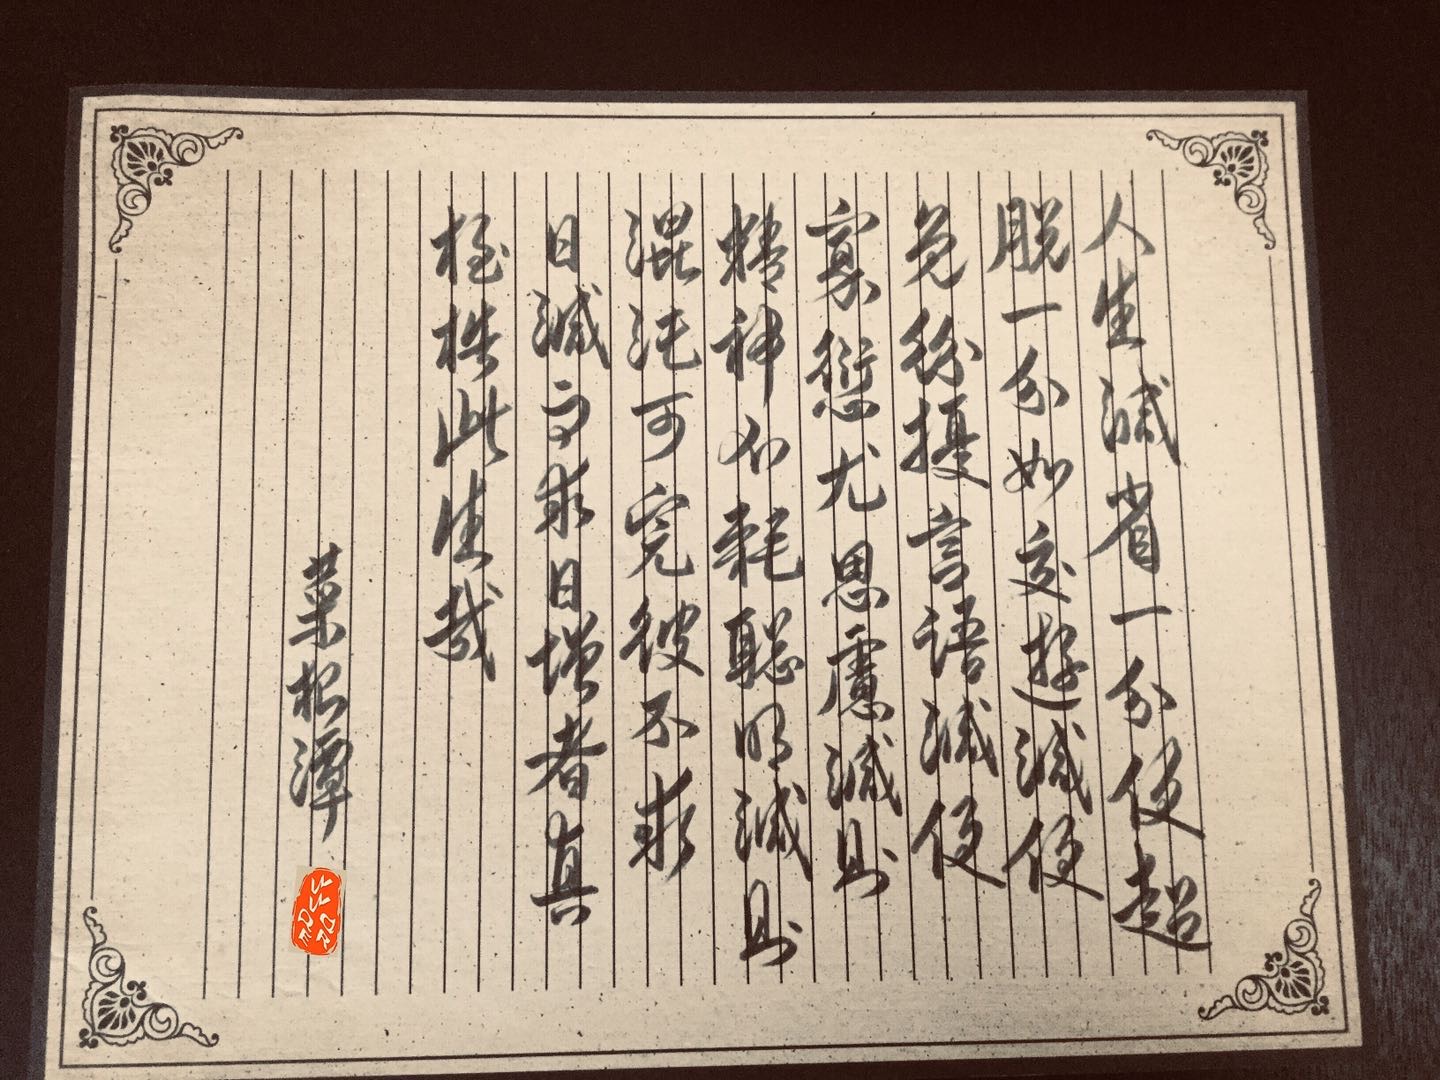 人生減省一分便超
脫一分如交遊減便
免紛擾言語減便
寡愆尤思慮減則
精神不耗聰明減則
混沌可完彼不求
日減而求日增者真
桎梏此生哉
菜根潭